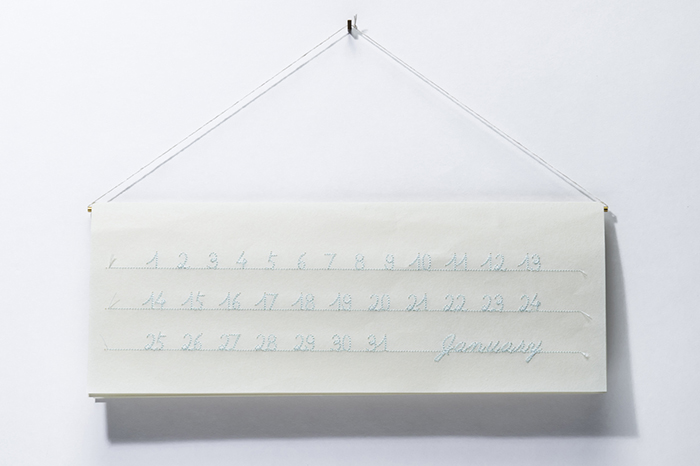 1 2 3 4 5 6 7 8 9 10 11 12 13
14 15 16 17 18 19 20 21 22 23 24
25 26 27 28 29 30 31 January